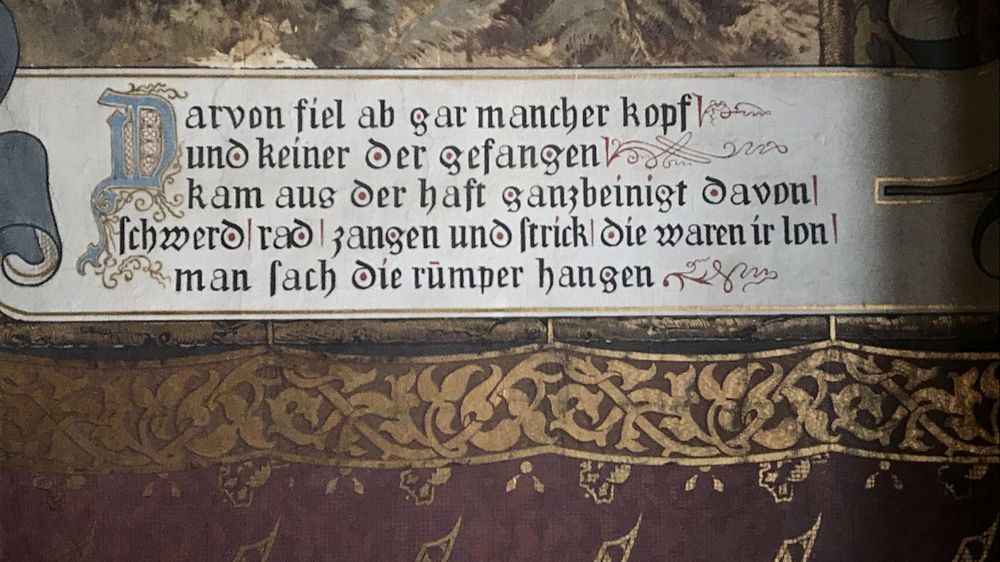 Darvon fiel ab gar mancher kopf|
und keiner der gefangen|
kam aus der haft ganzbeinigt davon|
schwerd| rad| zangen und strick| die waren ir lon|
man sach die rūmper hangen